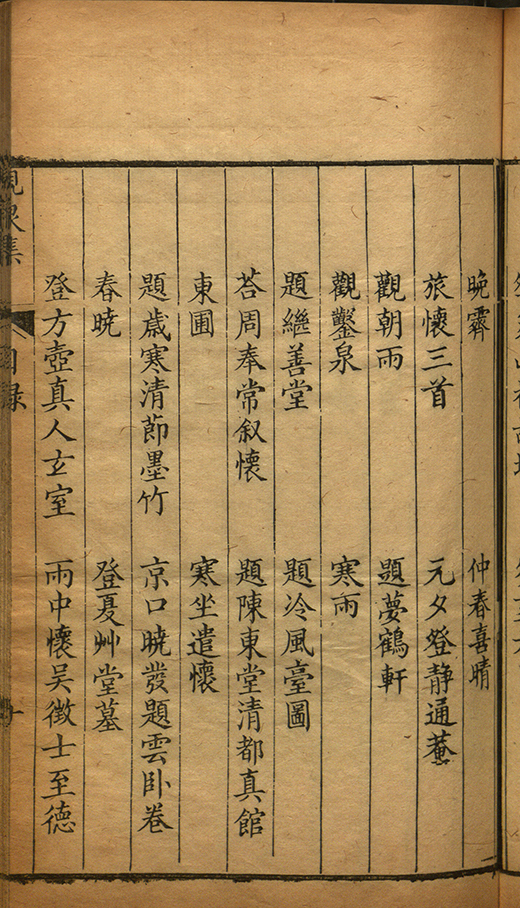 晩霽　仲春喜晴
旅懷三首　元夕登静通菴
觀朝雨　題夢鶴軒
觀鑿泉　寒雨
題繼善堂　題冷風臺圖
荅周奉常叙懷　題陳東堂清都真館
東圃　寒坐遣懷
題歳寒清莭墨竹　京口暁發題雲卧卷
春暁　登夏艸堂墓
登方壺真人玄室　雨中懷吴徴士至德
峴泉集　目録